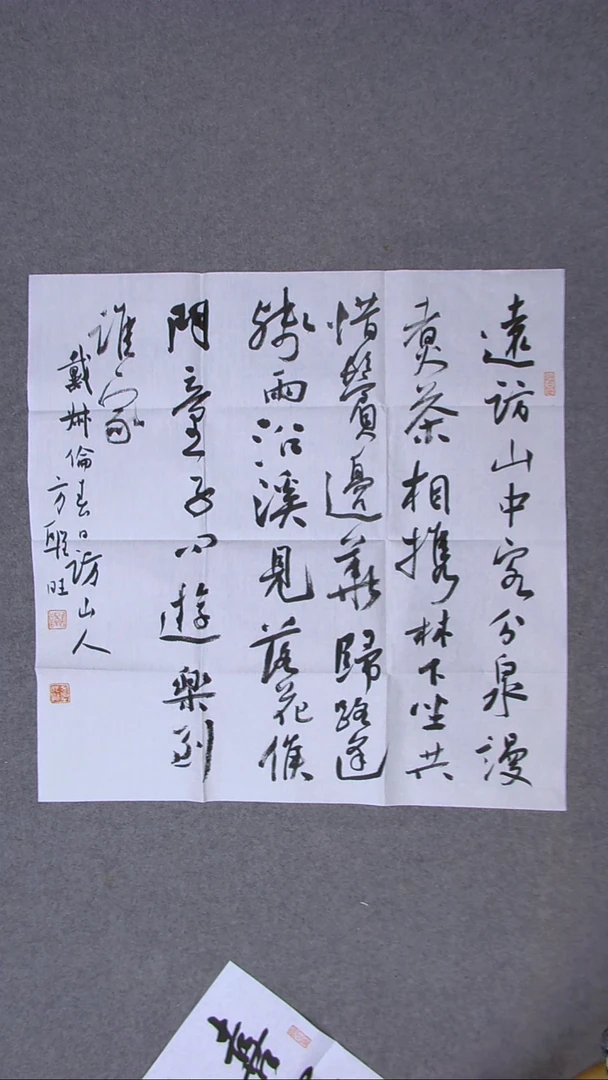 遠訪山中客分泉漫
煮茶相攜林下坐共
惜鬢邊華歸路逢
殘雨沿溪見落花候
門童子問遊樂到
誰家
戴叔倫春日訪山人
方旺